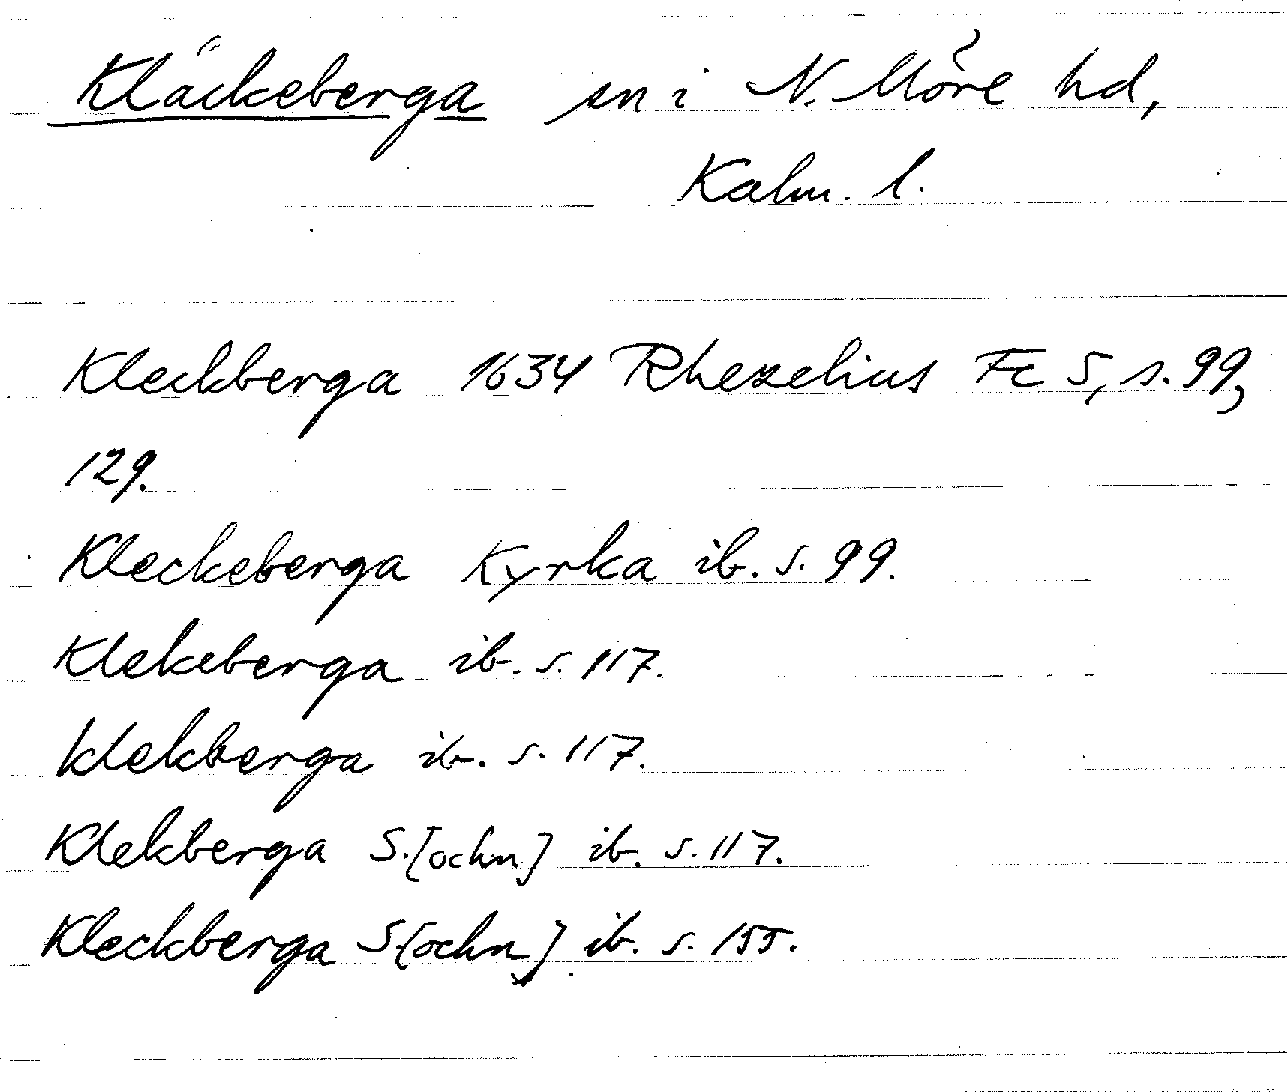 Kläckeberga sn i N. Möre hd,
Kalm. l.
Kleckberga 1634 Rhezelius Fc 5, s. 99,
129.
Kleckeberga Kyrka ib. s. 99.
Klekeberga ib. s. 117.
klekberga ib. s. 117.
Klekberga S.[ochn] ib. s. 117.
Kleckberga S[ochn] ib. s. 155.